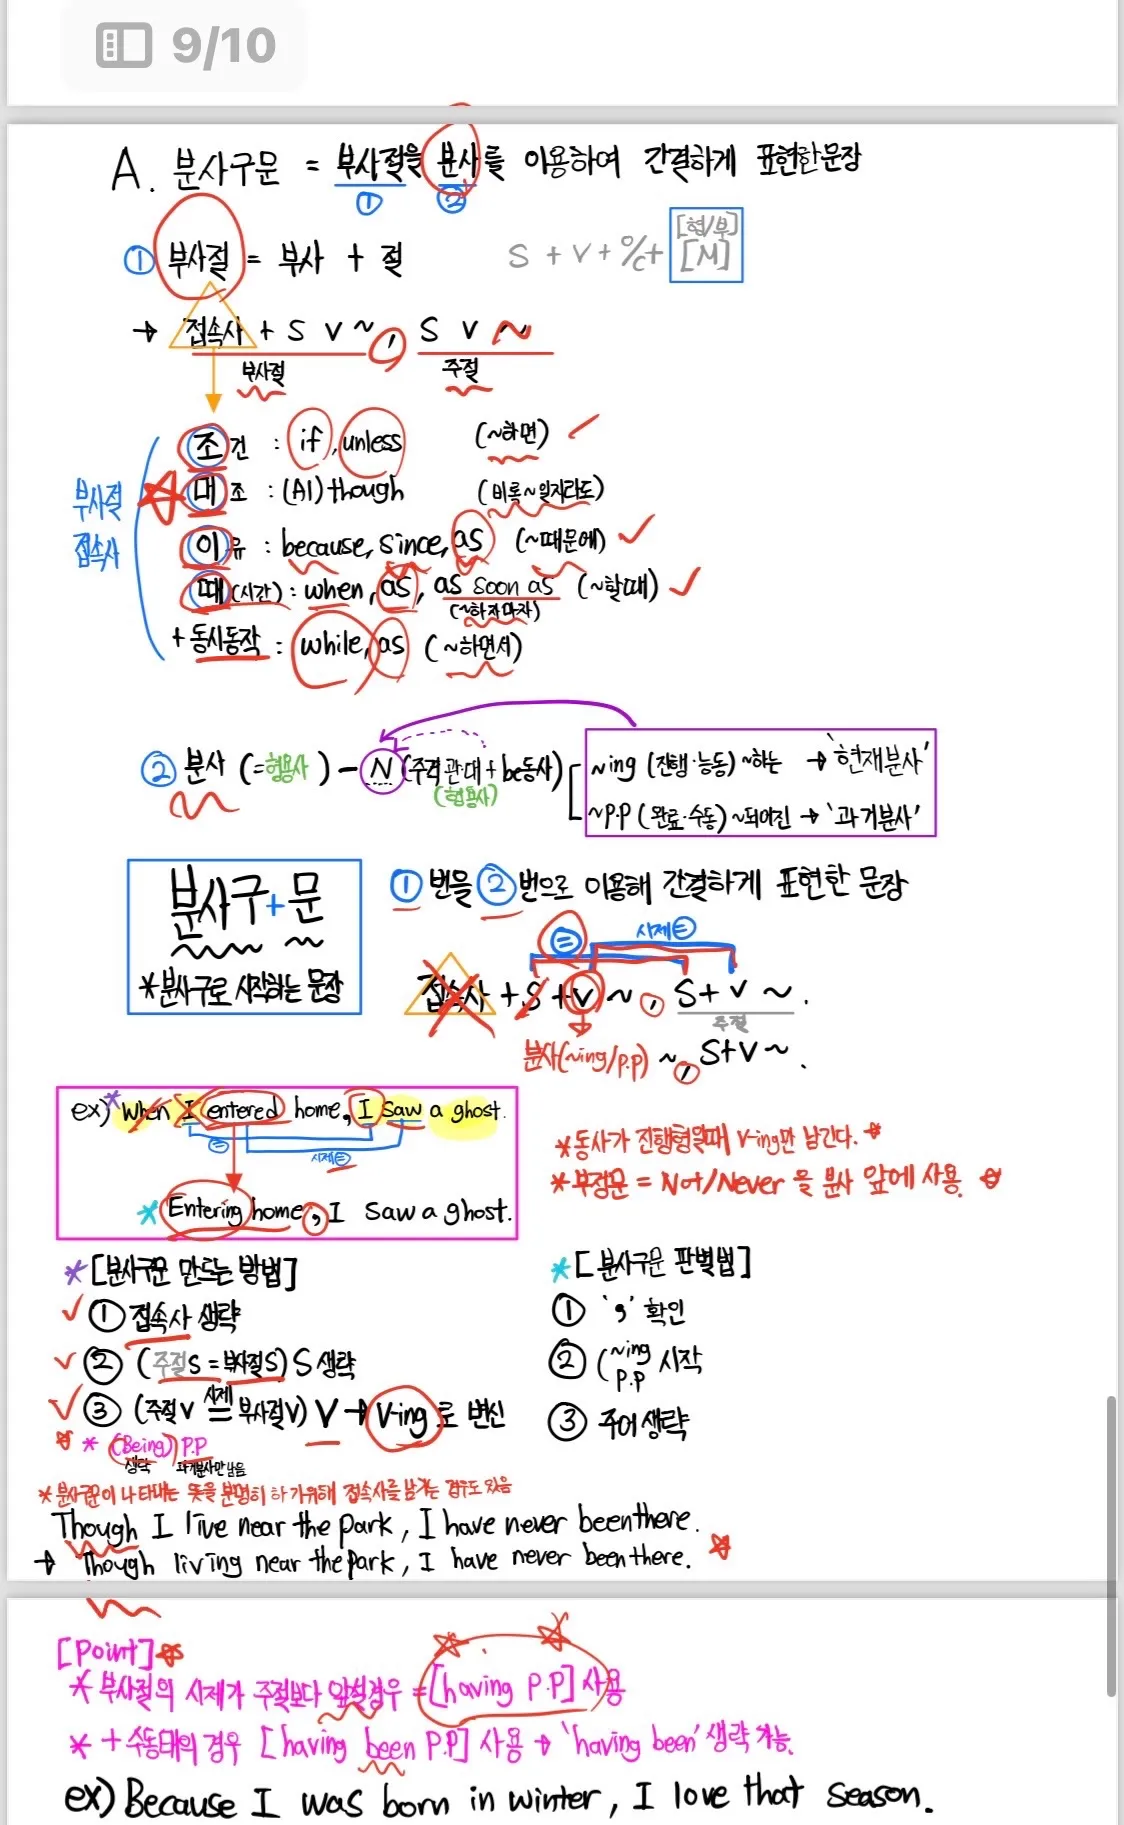 9/10
A. 분사구문 = 부사절을 분사를 이용하여 간결하게 표현한 문장
① ②
① 부사절 = 부사 + 절 S + V + O/C + [형/부] [M]
→ 접속사 + S V ~, S V ~
부사절 주절
부사절 접속사
조건 : if, unless (~하면)
대조 : (Al)though (비록~일지라도)
이유 : because, since, as (~때문에)
때(시간) : when, as, as soon as (~할때)
(~하자마자)
+ 동시동작 : while, as (~하면서)
② 분사 (=형용사) - N (주격관·대+be동사) ~ing (진행·능동) ~하는 → '현재분사'
(형용사) ~p.p (완료·수동) ~되어진 → '과거분사'
분사구+문
*분사구로 시작하는 문장
①번을 ②번으로 이용해 간결하게 표현한 문장
= 시제=
접속사 + S + V ~, S + V ~.
주절
분사(~ing/p.p) ~, S+V ~.
ex) *When I entered home, I saw a ghost.
= 시제=
* Entering home, I saw a ghost.
*동사가 진행형일때 V-ing만 남긴다.
*부정문 = Not/Never 을 분사 앞에 사용.
*[분사구문 만드는 방법]
① 접속사 생략
② (주절S = 부사절S) S 생략
③ (주절V 시제= 부사절V) V → V-ing로 변신
* (Being) P.P
생략 과거분사만 남음
*[분사구문 판별법]
① ',' 확인
② (~ing P.P 시작
③ 주어생략
*분사구문이 나타내는 뜻을 분명히 하기위해 접속사를 남기는 경우도 있음
Though I live near the park, I have never been there.
→ Though living near the park, I have never been there.
[Point]
* 부사절의 시제가 주절보다 앞설경우 = [having P.P] 사용
* + 수동태의 경우 [having been P.P] 사용 → 'having been' 생략 가능.
ex) Because I was born in winter, I love that season.